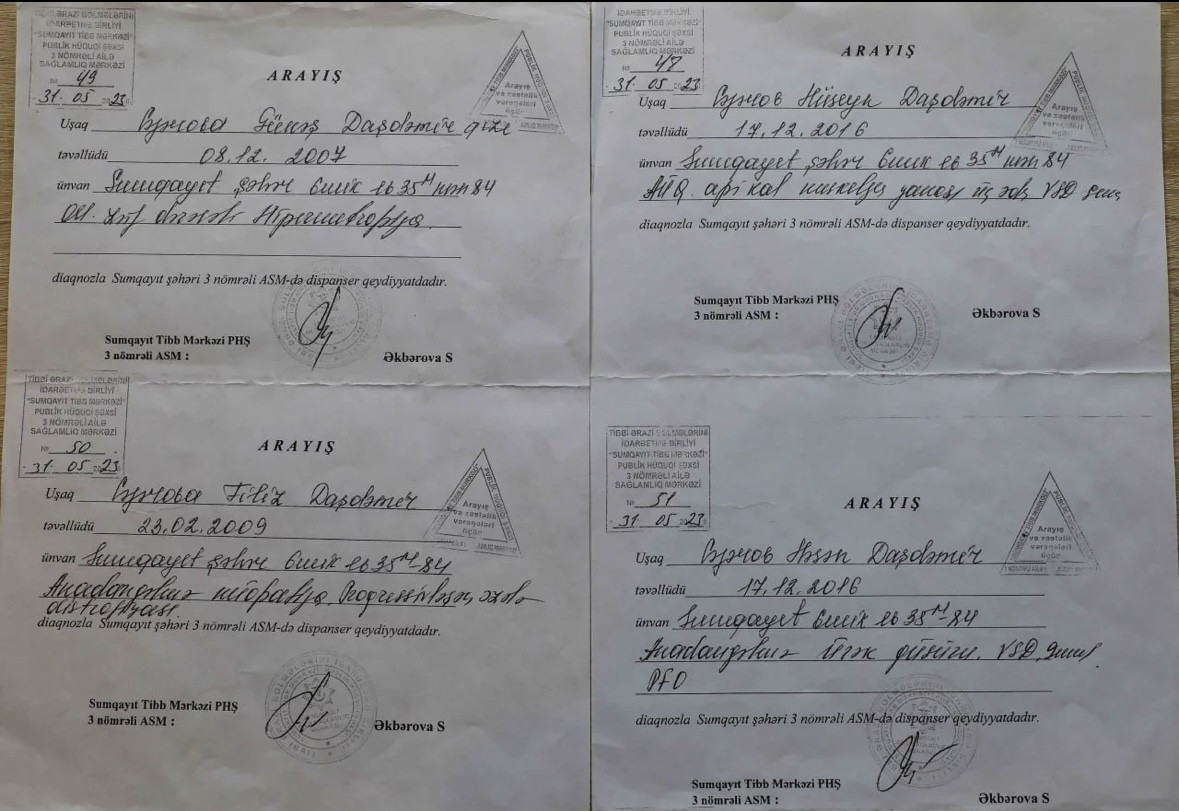 TİBBİ ƏRAZİ BÖLMƏLƏRİNİ
İDARƏETMƏ BİRLİYİ
"SUMQAYIT TİBB MƏRKƏZİ"
PUBLİK HÜQUQİ ŞƏXSİ
3 NÖMRƏLİ AİLƏ
SAĞLAMLIQ MƏRKƏZİ
№ 49
31 05 2023
ARAYIŞ
Arayış
və xəstəlik
vərəqələri
üçün
Uşaq Daşdəmir qızı
təvəllüdü 08.12. 2007
ünvan Sumqayıt şəhər 35 84
diaqnozla Sumqayıt şəhəri 3 nömrəli ASM-də dispanser qeydiyyatdadır.
Sumqayıt Tibb Mərkəzi PHŞ
3 nömrəli ASM : Əkbərova S
İDARƏETMƏ BİRLİYİ
"SUMQAYIT TİBB MƏRKƏZİ"
PUBLİK HÜQUQİ ŞƏXSİ
3 NÖMRƏLİ AİLƏ
SAĞLAMLIQ MƏRKƏZİ
№ 47
31 05 2023
ARAYIŞ
Arayış
və xəstəlik
vərəqələri
üçün
Uşaq Hüseyn Daşdəmir
təvəllüdü 17.12.2016
ünvan Sumqayıt şəhər 35 84
apikal VSD
diaqnozla Sumqayıt şəhəri 3 nömrəli ASM-də dispanser qeydiyyatdadır.
Sumqayıt Tibb Mərkəzi PHŞ
3 nömrəli ASM : Əkbərova S
TİBBİ ƏRAZİ BÖLMƏLƏRİNİ
İDARƏETMƏ BİRLİYİ
"SUMQAYIT TİBB MƏRKƏZİ"
PUBLİK HÜQUQİ ŞƏXSİ
3 NÖMRƏLİ AİLƏ
SAĞLAMLIQ MƏRKƏZİ
№ 50
31 05 2023
ARAYIŞ
Arayış
və xəstəlik
vərəqələri
üçün
Uşaq Filiz Daşdəmir
təvəllüdü 23.02.2009
ünvan Sumqayıt şəhər 35 84
Anadangəlmə miopatiya. əzələ
distrofiyası.
diaqnozla Sumqayıt şəhəri 3 nömrəli ASM-də dispanser qeydiyyatdadır.
Sumqayıt Tibb Mərkəzi PHŞ
3 nömrəli ASM : Əkbərova S
TİBBİ ƏRAZİ BÖLMƏLƏRİNİ
İDARƏETMƏ BİRLİYİ
"SUMQAYIT TİBB MƏRKƏZİ"
PUBLİK HÜQUQİ ŞƏXSİ
3 NÖMRƏLİ AİLƏ
SAĞLAMLIQ MƏRKƏZİ
№ 51
31 05 2023
ARAYIŞ
Arayış
və xəstəlik
vərəqələri
üçün
Uşaq Həsən Daşdəmir
təvəllüdü 17.12.2016
ünvan Sumqayıt 35 84
Anadangəlmə ürək qüsuru. VSD
PFO
diaqnozla Sumqayıt şəhəri 3 nömrəli ASM-də dispanser qeydiyyatdadır.
Sumqayıt Tibb Mərkəzi PHŞ
3 nömrəli ASM : Əkbərova S